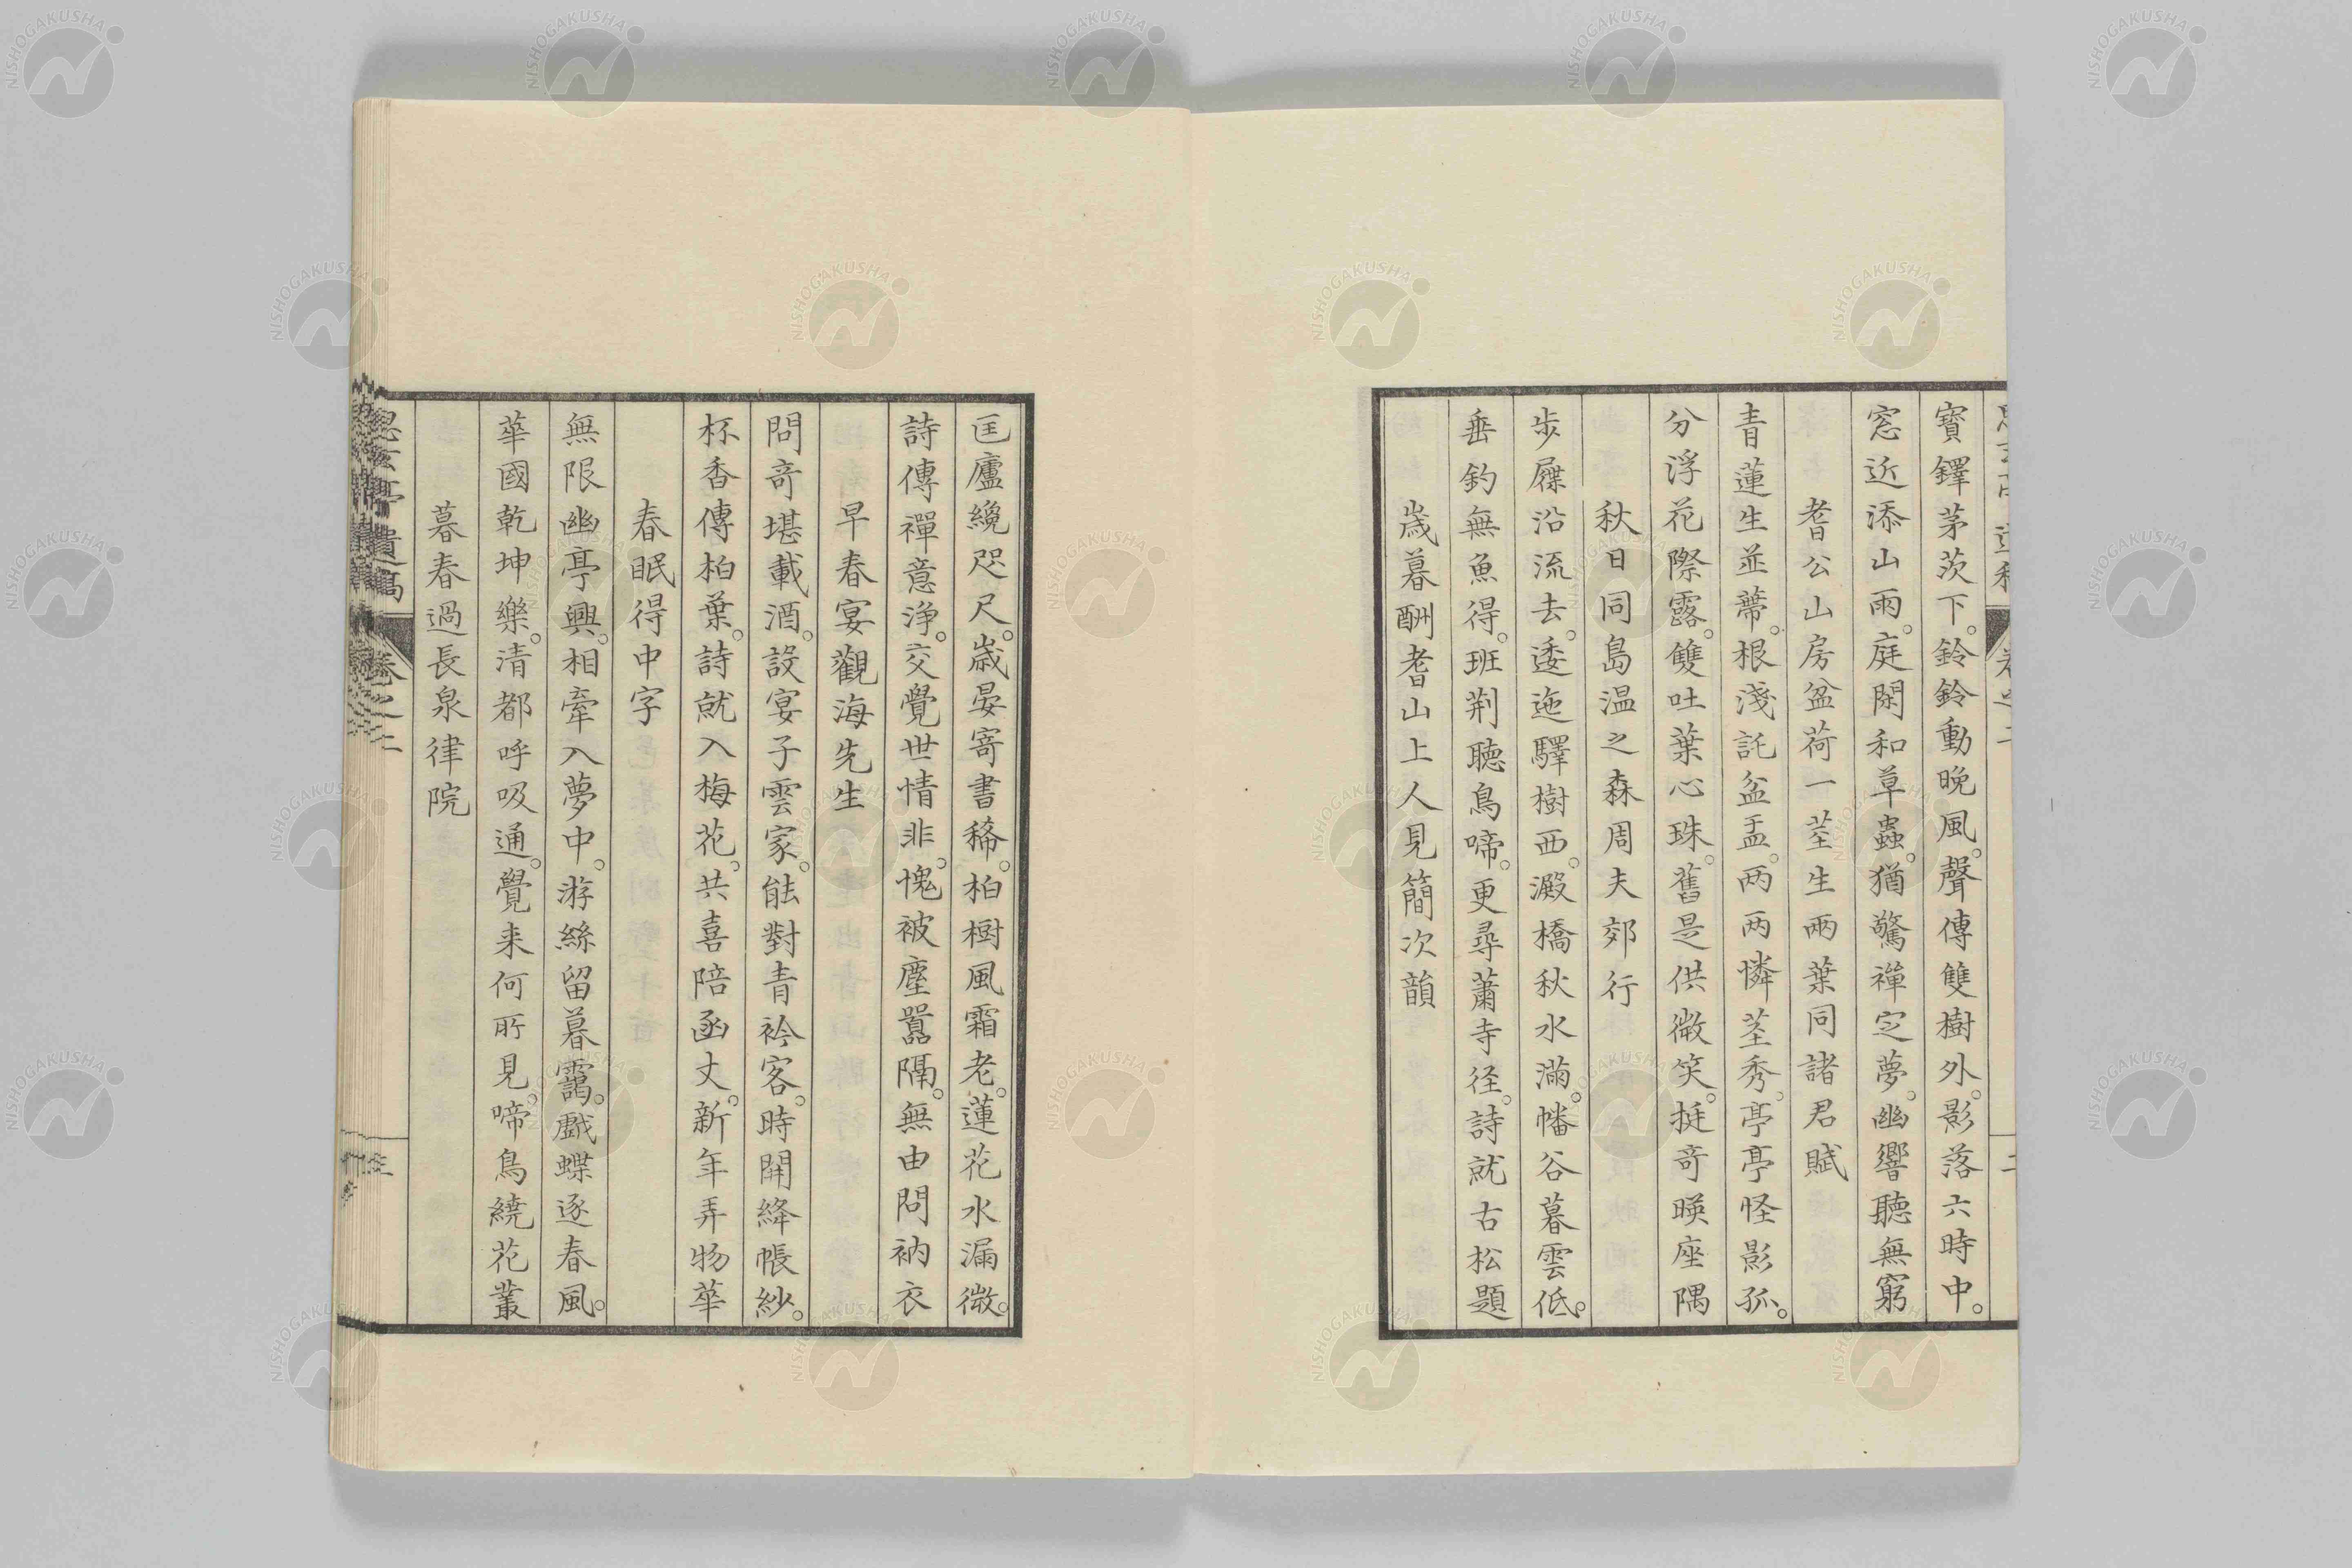 寶鐸茅茨下。鈴鈴動晩風。聲傳雙樹外。影落六時中。
窓近添山雨。庭閑和草蟲。猶驚禪定夢。幽響聽無窮
耆公山房盆荷一莖生兩葉同諸君賦
青蓮生並蔕。根淺託盆盂。两两憐莖秀。亭亭怪影孤。
分浮花際露。雙吐葉心珠。舊是供微笑。挺奇暎座隅
秋日同島温之森周夫郊行
歩屧沿流去。逶迤驛樹西。澱橋秋水滿。幡谷暮雲低。
垂釣無魚得。班荆聴鳥啼。更尋蕭寺径。詩就古松題
歳暮酬耆山上人見簡次韻
匡廬纔咫尺。歳晏寄書稀。柏樹風霜老。蓮花水漏微。
詩傳禪意浄。交覺世情非。愧被塵囂隔。無由問衲衣
早春宴觀海先生
問奇堪載酒。設宴子雲家。能對青衿客。時開絳帳紗。
杯香傳柏葉。詩就入梅花。共喜陪函丈。新年弄物華
春眠得中字
無限幽亭興。相牽入夢中。游絲留暮靄。戯蝶逐春風。
華國乾坤樂。清都呼吸通。覺来何所見。啼鳥繞花叢
暮春過長泉律院
亭遺稿 卷之二
三
NISHOGAKUSHA